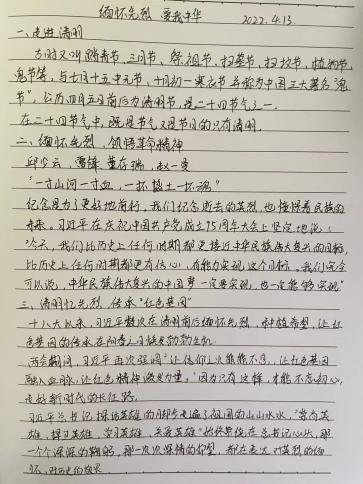 缅怀先烈 爱我中华 2022.4.13.
一、走进清明
古时又叫踏青节、三月节、祭祖节、扫墓节、扫坟节、植树节、
鬼节等，与七月十五中元节、十月初一寒衣节并称为中国三大著名“鬼
节”，公历四月五日前后为清明节，是二十四节气之一。
在二十四节气中，既是节气又是节日的只有清明。
二、缅怀先烈，领悟革命精神
邱少云 雷锋 董存瑞 赵一曼
“一寸山河一寸血，一抔热土一抔魂”
纪念是为了更好地前行，我们纪念逝去的英烈，也憧憬着民族的
未来。习近平在庆祝中国共产党成立95周年大会上坚定地说：
“今天，我们比历史上任何时期都更接近中华民族伟大复兴的目标，
比历史上任何时期都更有信心、有能力实现这个目标。我们完全
可以说，中华民族伟大复兴的中国梦一定要实现，也一定能够实现”
三、清明忆先烈 传承“红色基因”
十八大以来，习近平数次在清明前后缅怀先烈，种植希望，让红
色基因的传承在阳春三月焕发勃勃生机。
两会期间，习近平再次强调“让信仰之火熊熊不息，让红色基因
融入血脉，让红色精神激发力量。”因为只有这样，才能不忘初心，
走好新时代的长征路。
习近平总书记探访英雄的脚步走遍了祖国的山山水水，“崇尚英
雄，捍卫英雄，学习英雄，关爱英雄”始终牵挂在总书记心头，那
一个个深深的鞠躬，那一次次深情的仰望，都在表达对英烈的缅
怀、对历史的